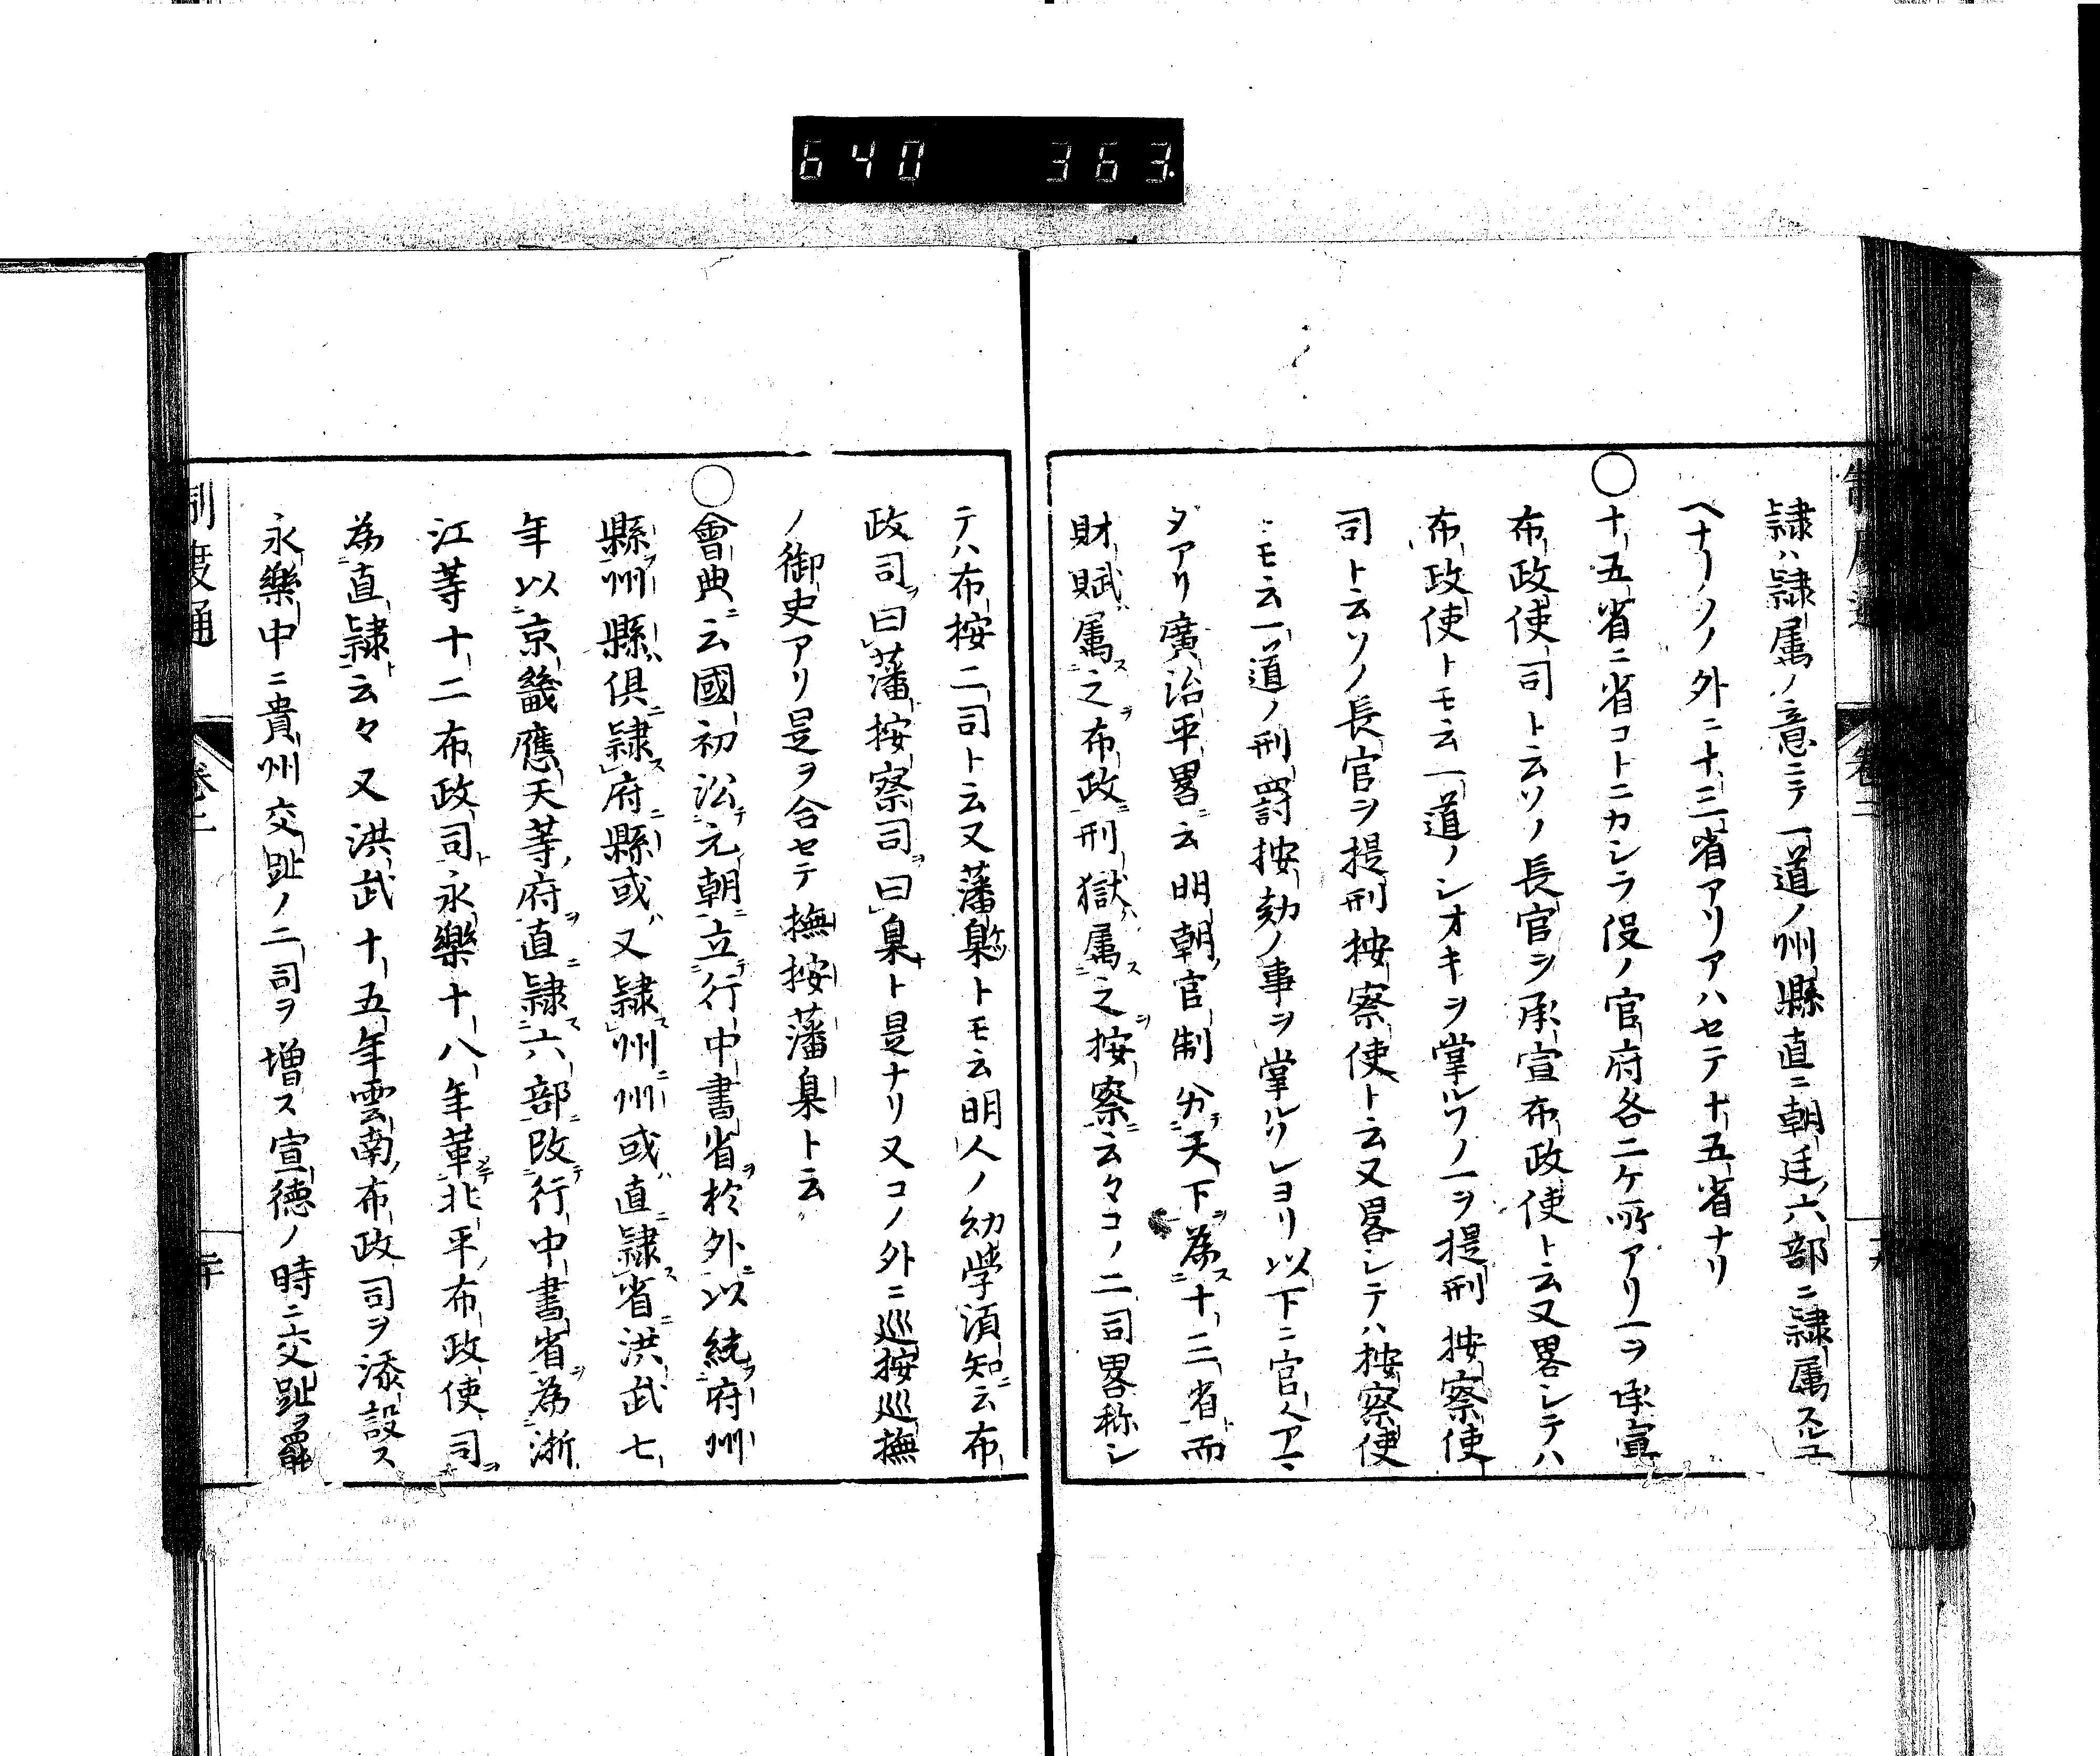 640 363
隷ハ隷属ノ意ニテ一道ノ州縣直ニ朝廷六部ニ隷属スルユ
ヘナリソノ外ニ十三省アリアハセテ十五省ナリ
〇十五省ニ省コトニカシラ役ノ官府各二ケ所アリ一ヲ承宣
布政使司ト云ソノ長官ヲ承宣布政使ト云又畧シテハ
布政使トモ云一道ノシオキヲ掌ルソノ一ヲ提刑按察使
司ト云ソノ長官ヲ提刑按察使ト云又畧シテハ按察使
トモ云一道ノ刑罰按劾ノ事ヲ掌ルソレヨリ以下ニ官人アマ
タアリ廣治平畧ニ云明朝官制分テ天下ヲ為ス十三省ト而
財賦ハ属ス之ヲ布政ニ刑獄ハ属ス之ヲ按察ニ云々コノ二司畧称シ
テハ布按二司ト云又藩臬トモ云明人ノ幼學須知ニ云布
政司ヲ曰藩按察司ヲ曰臬ト是ナリ又コノ外ニ巡按巡撫
ノ御史アリ是ヲ合セテ撫按藩臬ト云
〇會典ニ云國初沿元朝ニ立テ行中書省ヲ於外ニ以統フ府州
縣ヲ州縣ハ俱ニ隷ス府ニ縣或ハ又隷ス州ニ州或ハ直ニ隷ス省ニ洪武七
年以京畿應天等ノ府ヲ直ニ隷ス六部ニ改テ行中書省ヲ為浙
江等十二布政司ト永樂十八年革メテ北平布政使司ヲ
為直隷ト云々又洪武十五年雲南布政司ヲ添設ス
永樂中ニ貴州交趾ノ二司ヲ増ス宣德ノ時ニ交趾ヲ罷
制度通 卷二